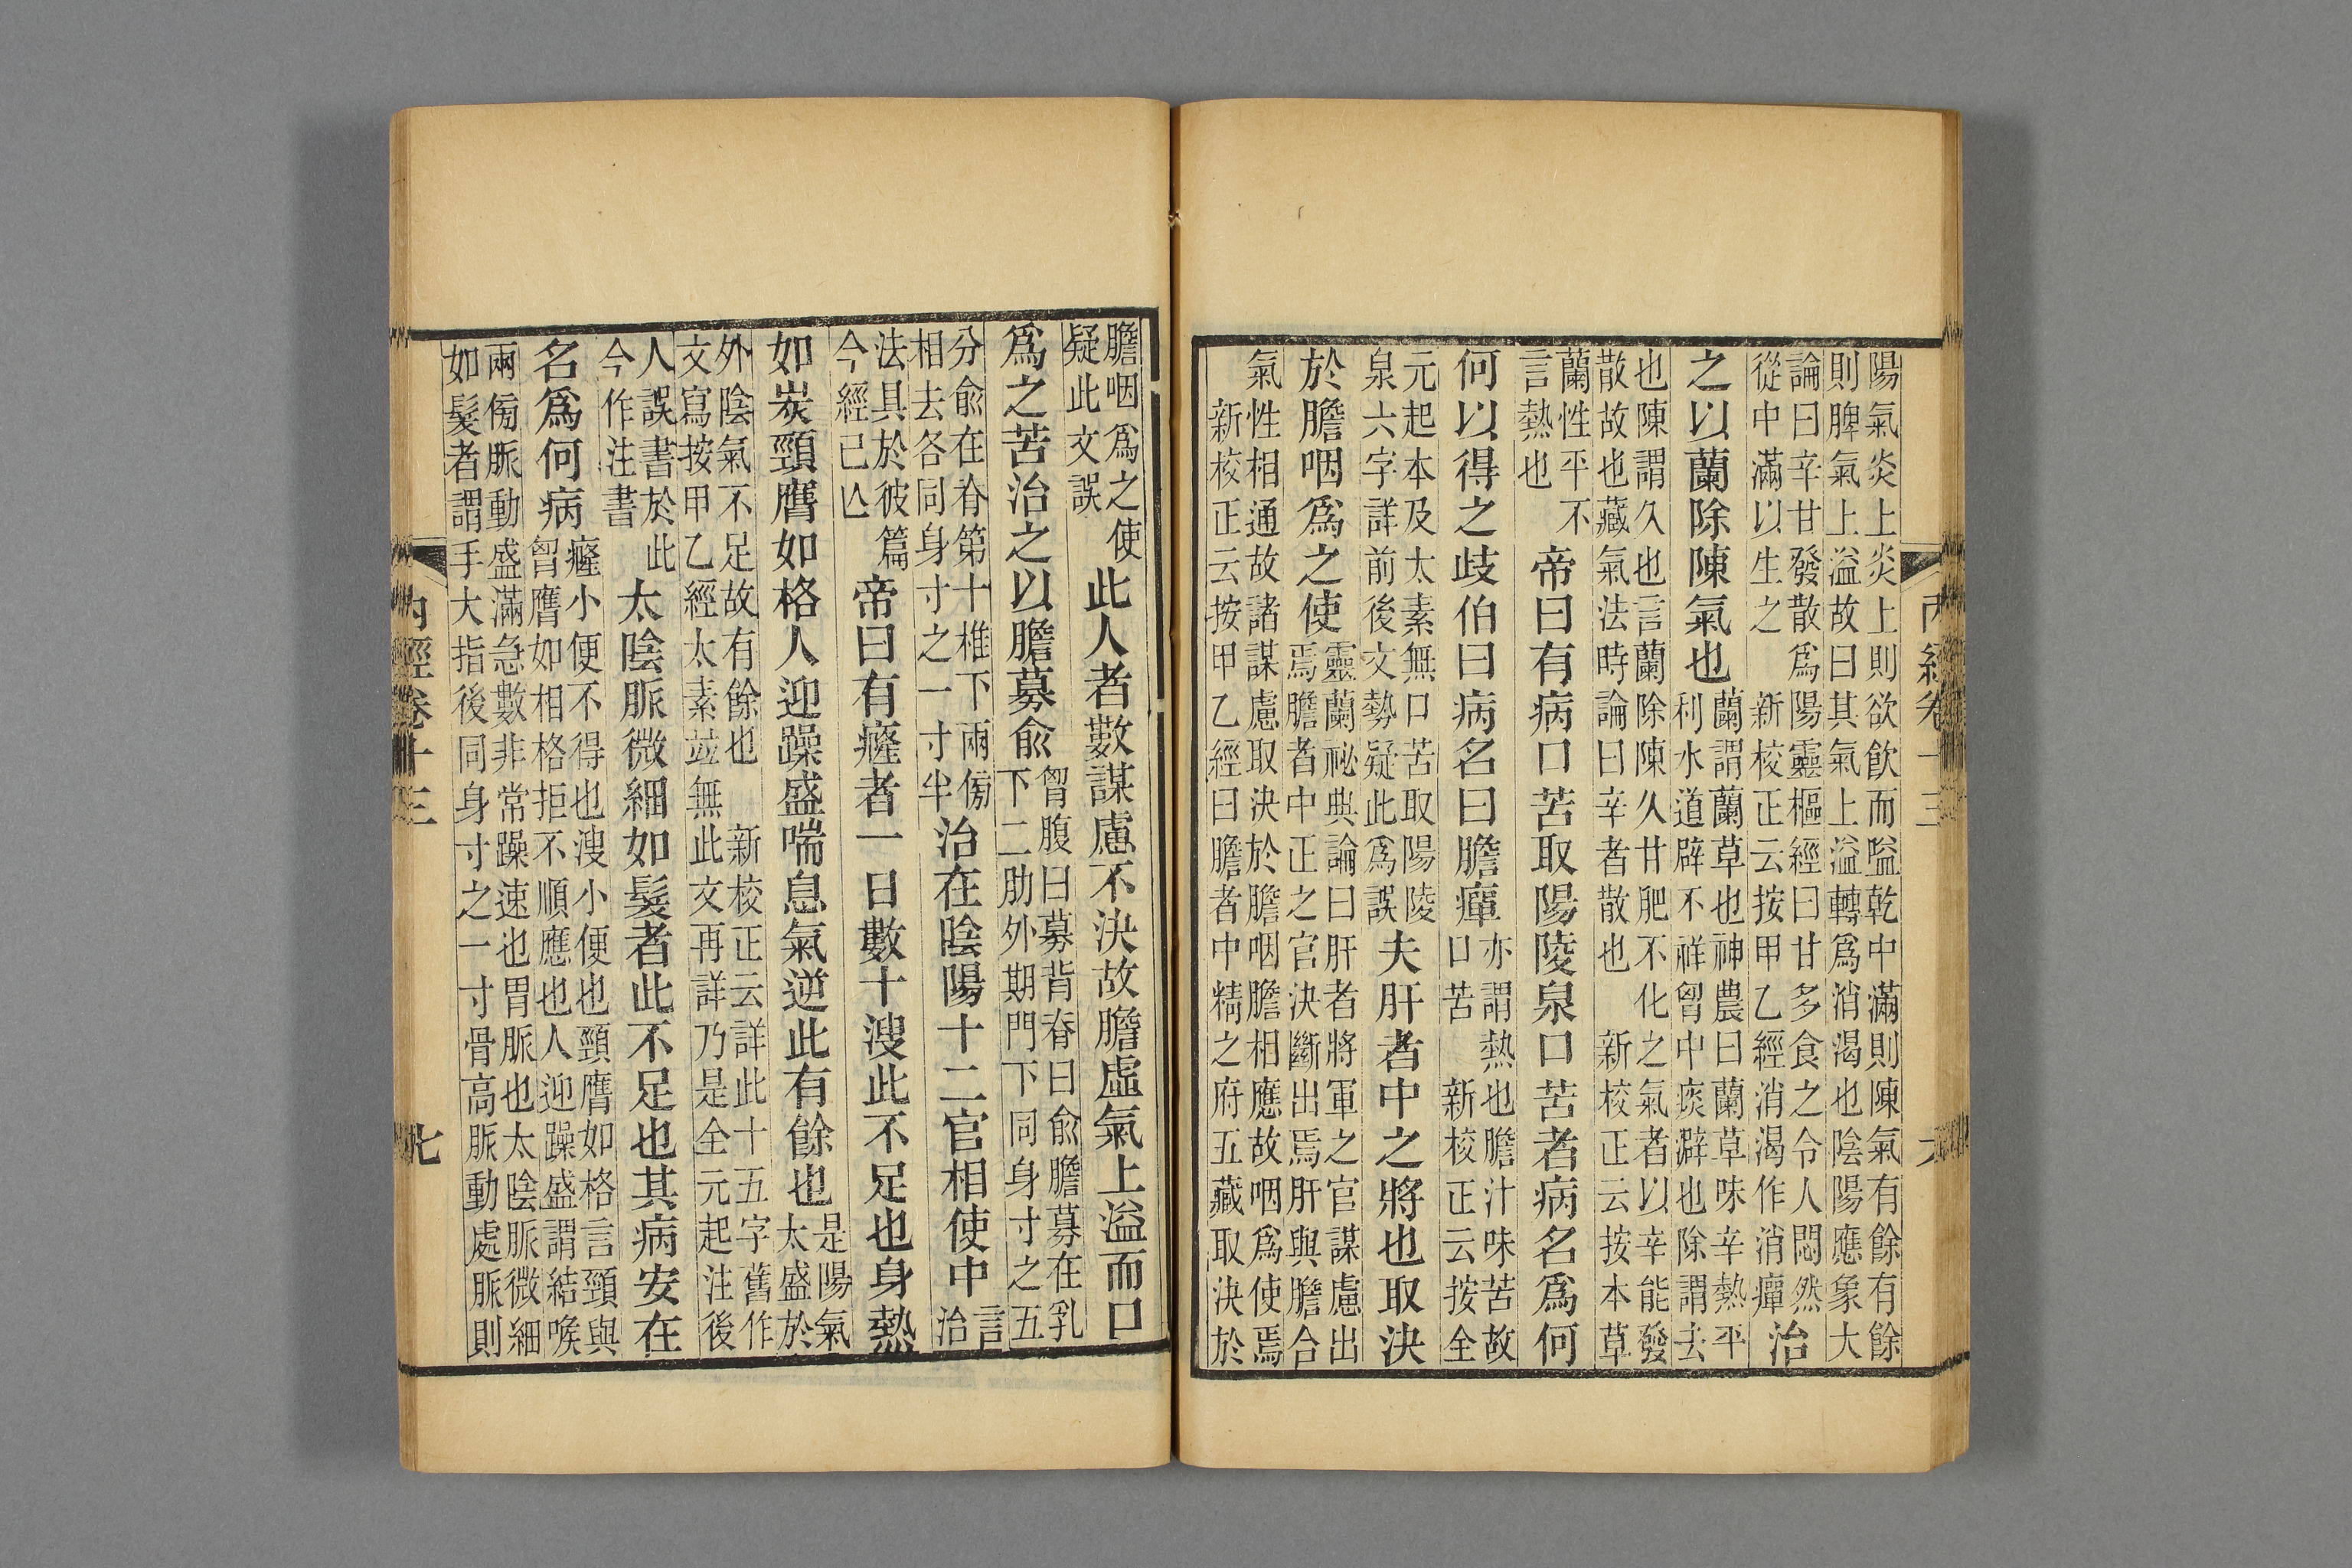 陽氣炎上炎上則欲飲而隘乾中滿則陳氣有餘有餘
則脾氣上溢故曰其氣上溢轉爲消渴也陰陽應象大
論曰辛甘發散爲陽靈樞經曰甘多食之令人悶然
從中滿以生之　新校正云按甲乙經消渴作消癉
治
之以蘭除陳氣也
蘭謂蘭草也神農曰蘭草味辛熱平
利水道辟不祥胷中痰澼也除謂去
也陳謂久也言蘭除陳久甘肥不化之氣者以辛能發
散故也藏氣法時論曰辛者散也　新校正云按本草
蘭性平不
言熱也
帝曰有病口苦取陽陵泉口苦者病名爲何
何以得之歧伯曰病名曰膽癉
亦謂熱也膽汁味苦故
口苦　新校正云按全
元起本及太素無口苦取陽陵
泉六字詳前後文勢疑此爲誤
夫肝者中之將也取決
於膽咽爲之使
靈蘭祕典論曰肝者將軍之官謀慮出
焉膽者中正之官決斷出焉肝與膽合
氣性相通故諸謀慮取決於膽咽膽相應故咽爲使焉
新校正云按甲乙經曰膽者中精之府五藏取決於
膽咽爲之使
疑此文誤
此人者數謀慮不決故膽虛氣上溢而口
爲之苦治之以膽募俞
胷腹曰募背脊曰俞膽募在乳
下二肋外期門下同身寸之五
分俞在脊第十椎下兩傍
相去各同身寸之一寸半
治在陰陽十二官相使中
言
治
法具於彼篇
今經已亾
帝曰有癃者一日數十溲此不足也身熱
如炭頸膺如格人迎躁盛喘息氣逆此有餘也
是陽氣
太盛於
外陰氣不足故有餘也　新校正云詳此十五字舊作
文寫按甲乙經太素竝無此文再詳乃是全元起注後
人誤書於此
今作注書
太陰脈微細如髮者此不足也其病安在
名爲何病
癃小便不得也溲小便也頸膺如格言頸與
胷膺如相格拒不順應也人迎躁盛謂結喉
兩傍脈動盛滿急數非常躁速也胃脈也太陰脈微細
如髮者謂手大指後同身寸之一寸骨高脈動處脈則
內經卷十三
七